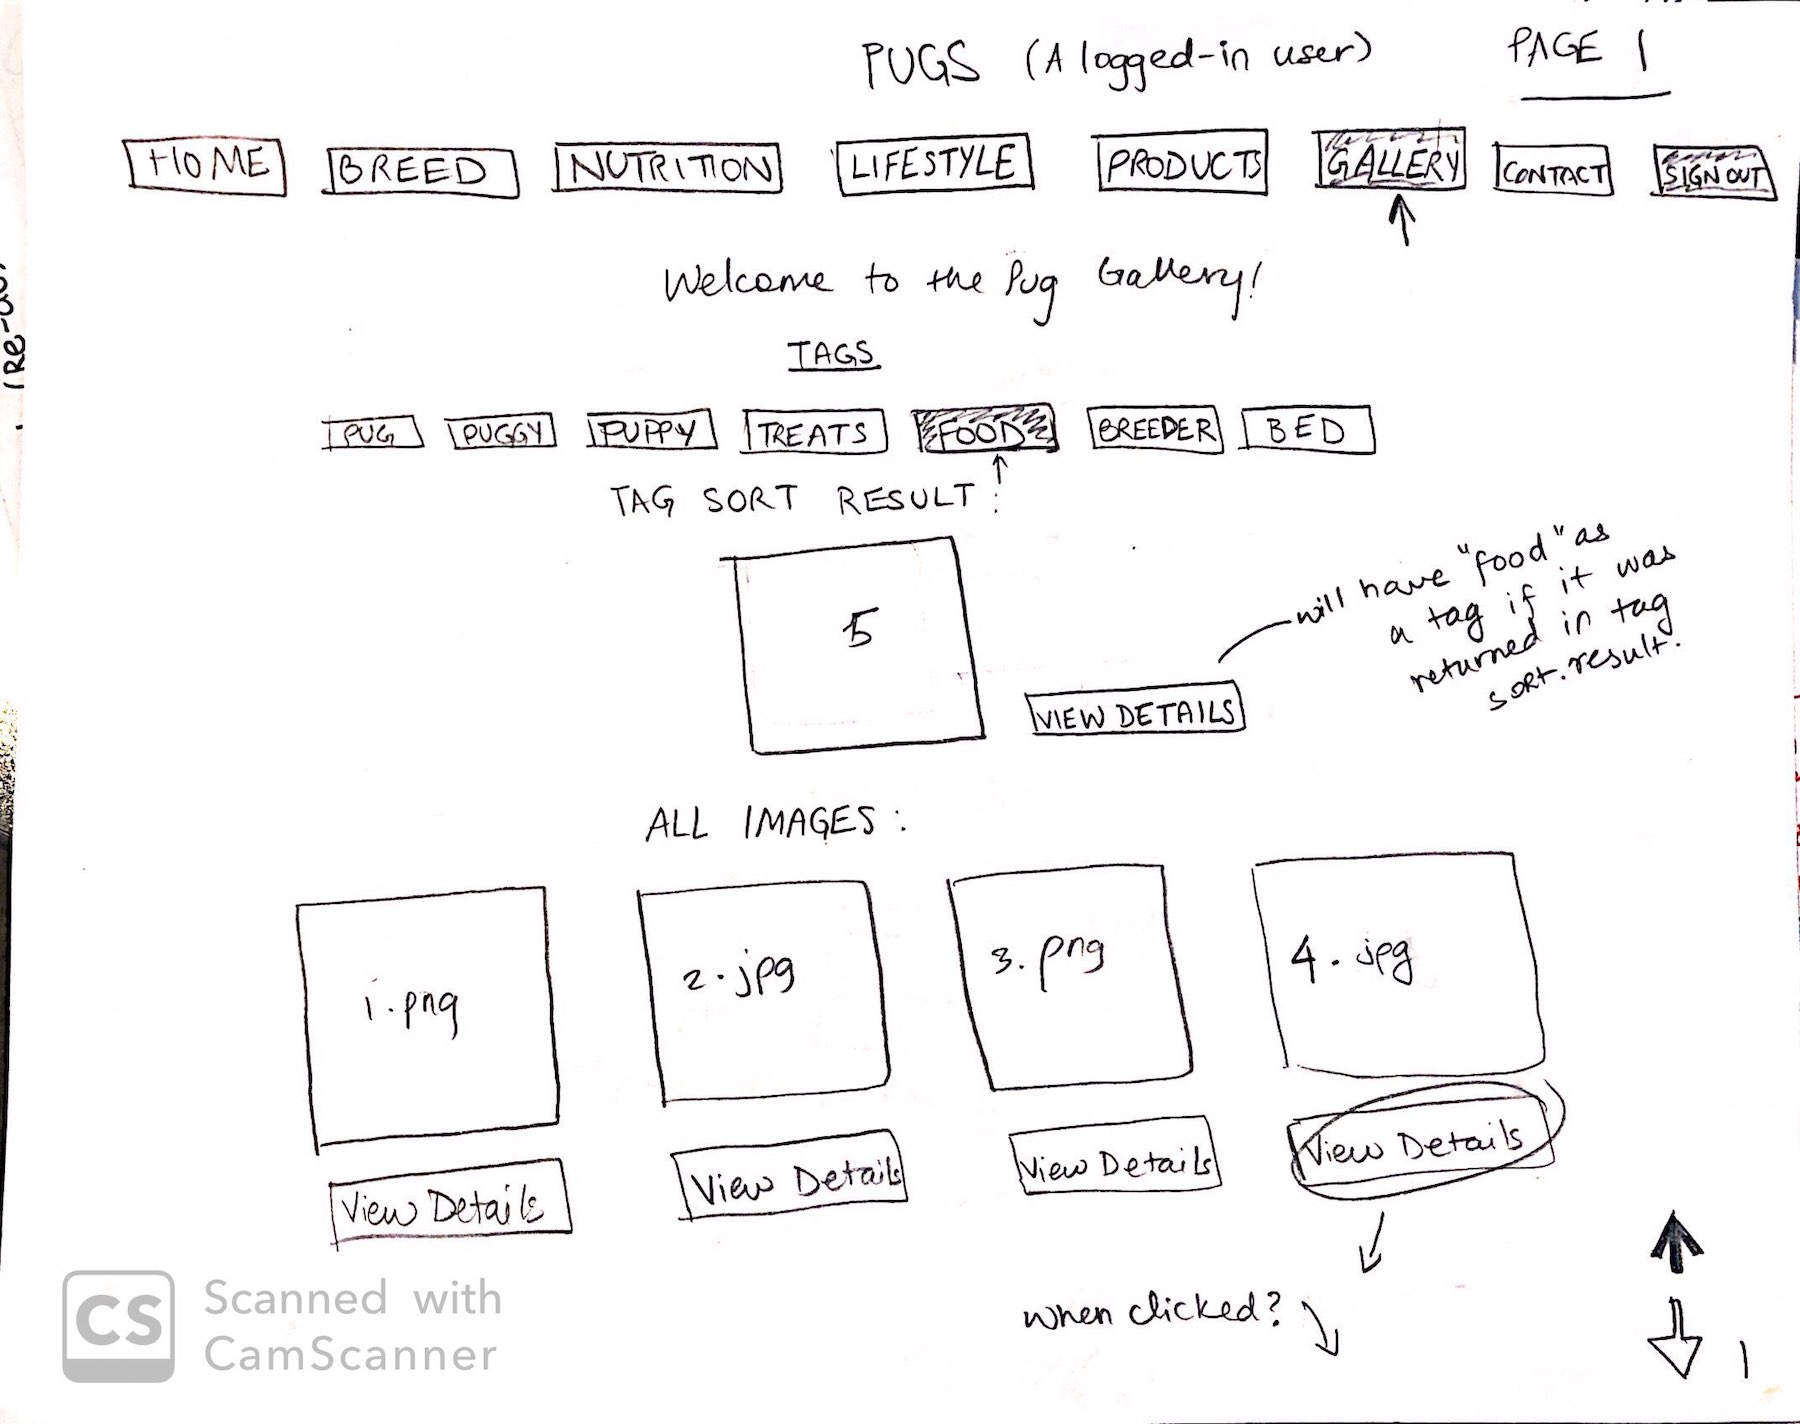 PUGS (A logged-in user) PAGE 1
HOME BREED NUTRITION LIFESTYLE PRODUCTS GALLERY CONTACT SIGN OUT
Welcome to the Pug Gallery!
TAGS
PUG PUGGY PUPPY TREATS FOOD BREEDER BED
TAG SORT RESULT:
5
VIEW DETAILS
will have "food" as
a tag if it was
returned in tag
sort.result.
ALL IMAGES:
1.png 2.jpg 3.png 4.jpg
View Details View Details View Details View Details
when clicked?
1
CS Scanned with
CamScanner